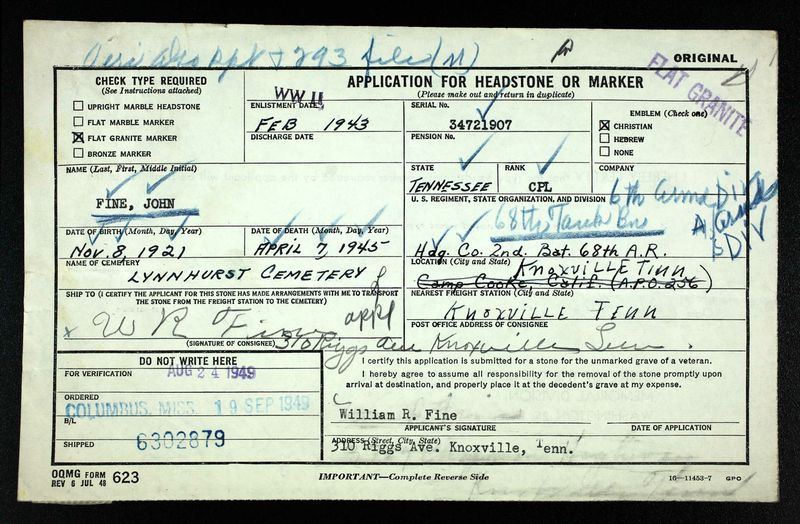 293 file (
ORIGINAL
FLAT GRANITE
CHECK TYPE REQUIRED
(See Instructions attached)
UPRIGHT MARBLE HEADSTONE
FLAT MARBLE MARKER
FLAT GRANITE MARKER
BRONZE MARKER
APPLICATION FOR HEADSTONE OR MARKER
(Please make out and return in duplicate)
WW II
ENLISTMENT DATE
FEB 1943
DISCHARGE DATE
SERIAL No.
34721907
PENSION No.
EMBLEM (Check one)
CHRISTIAN
HEBREW
NONE
NAME (Last, First, Middle Initial)
FINE, JOHN
STATE
TENNESSEE
RANK
CPL
COMPANY
U. S. REGIMENT, STATE ORGANIZATION, AND DIVISION
6th Armd DIV
68th Tank Bn
DIV
DATE OF BIRTH (Month, Day, Year)
NOV. 8, 1921
DATE OF DEATH (Month, Day, Year)
APRIL 7, 1945
Hdq. Co. 2nd. Bat. 68th A.R.
NAME OF CEMETERY
LYNNHURST CEMETERY
LOCATION (City and State)
KNOXVILLE TINN
Camp Cooke, Calif. (A.P.O. 256)
SHIP TO (I CERTIFY THE APPLICANT FOR THIS STONE HAS MADE ARRANGEMENTS WITH ME TO TRANSPORT
THE STONE FROM THE FREIGHT STATION TO THE CEMETERY)
NEAREST FREIGHT STATION (City and State)
KNOXVILLE TENN
x W R Fine appl
(SIGNATURE OF CONSIGNEE)
POST OFFICE ADDRESS OF CONSIGNEE
310 Riggs ave Knoxville Tenn.
DO NOT WRITE HERE
FOR VERIFICATION
AUG 24 1949
ORDERED
COLUMBUS, MISS. 19 SEP 1949
B/L
6302879
SHIPPED
I certify this application is submitted for a stone for the unmarked grave of a veteran.
I hereby agree to assume all responsibility for the removal of the stone promptly upon
arrival at destination, and properly place it at the decedent's grave at my expense.
William R. Fine
APPLICANT'S SIGNATURE
DATE OF APPLICATION
ADDRESS (Street, City, State)
310 Riggs Ave. Knoxville, Tenn.
OQMG FORM 623
REV 6 JUL 48
IMPORTANT—Complete Reverse Side
16—11453-7 GPO